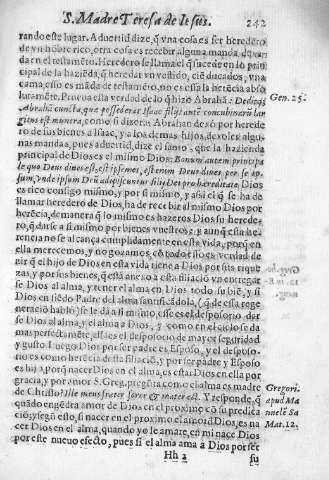 S. Madre Teresa de Iesus. 242
rando este lugar. Aduertid dize, q̃ vna cosa es ser heredero
de vn hõbre rico, otra cosa es recebir alguna manda q̃ qua-
dan en el testamẽto. Heredero llamo el q̃ sucede en lo prin-
cipal de la haziẽda, q̃ heredar vn vestido, ciẽ ducados, vna
cama, esso es mãda de testamẽto, no es essa la herẽcia abso
lutamẽte. Prueua esta verdad de lo q̃ hizo Abrahã: Deditq́;
Abrahã cuncta, quæ possederat Isaac filijs autẽ concubinarũ lar
gitus est munera, como si dixera: Abrahan dexò por herede
ro de sus bienes a Isaac, y a los demas hijos, dexoles algu-
nas mandas, pues aduertid, dize el santo, que la hazienda
principal de Dios es el mismo Dios: Bonum autem principa
le quo Deus diues est, est ipsemet, est enim Deus diues per se ip-
sum, vnde ipsum Deũ adipiscuntur filij Dei pro hæreditate. Dios
es rico contigo mismo, y por si mismo, y assi el q̃ se ha de
llamar heredero de Dios, ha de recebir al mismo Dios por
herẽcia, de manera q̃ lo mismo es hazeros Dios su herede-
ro, q̃ darse a si mismo por bienes vuestros: y aunq̃ esta he-
rencia no se alcança cumplidamente en esta vida, porq̃ en
ella merecemos, y no gozamos, cõ todo esso es verdad de
zir q̃ el hijo de Dios en esta vida tiene a Dios por sus rique
zas, y por sus bienes, q̃ està anexo a esta filiaciõ vn entregar
se Dios al alma, y tener el alma en Dios todo su biẽ, y si
Dios en siẽdo Padre del alma santificãdola, (q̃ de essa rege
neraciõ hablo) se le da a si mismo, esse es el desposorio de
se Dios al alma, y el alma a Dios, y como en el cielo se da
mas perfectamẽte, alli es el desposorio de mayor seguridad
y gusto. Luego Dios por ser padre es Esposo, y el desposo-
rio es como herẽcia desta filiaciõ, y por ser padre y Esposo
es hijo, porq̃ nacer Dios en el alma, es estar Dios en ella por
gracia, y por amor S. Greg. pregũta como el alma es madre
de Christo? Ille meus frater soror & mater est. Y responde, q̃
quãdo engẽdra amor de Dios en el proximo cõ su predica
ciõ, y segũ esto, si nacer en el proximo el amor d Dios, es na
cer Dios en el alma, quando yo le amare, es en mi nace Dios
por este nueuo efecto, pues si el alma ama a Dios por ser
Hh 2 su
Gen. 25.
Gregori.
apud Ma
nuelẽ Sa
Mat. 12.